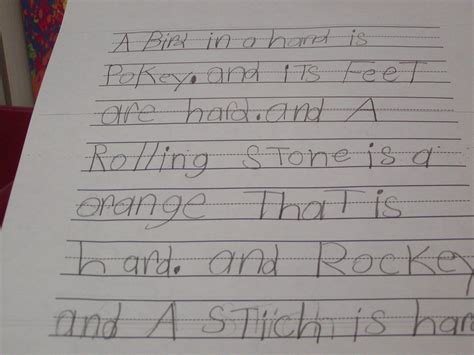 A Bird in a hand is
Pokey. and iTs FeeT
are hard. and A
Rolling STone is a
orange ThaT is
hard. and Rockey
and A STich is har